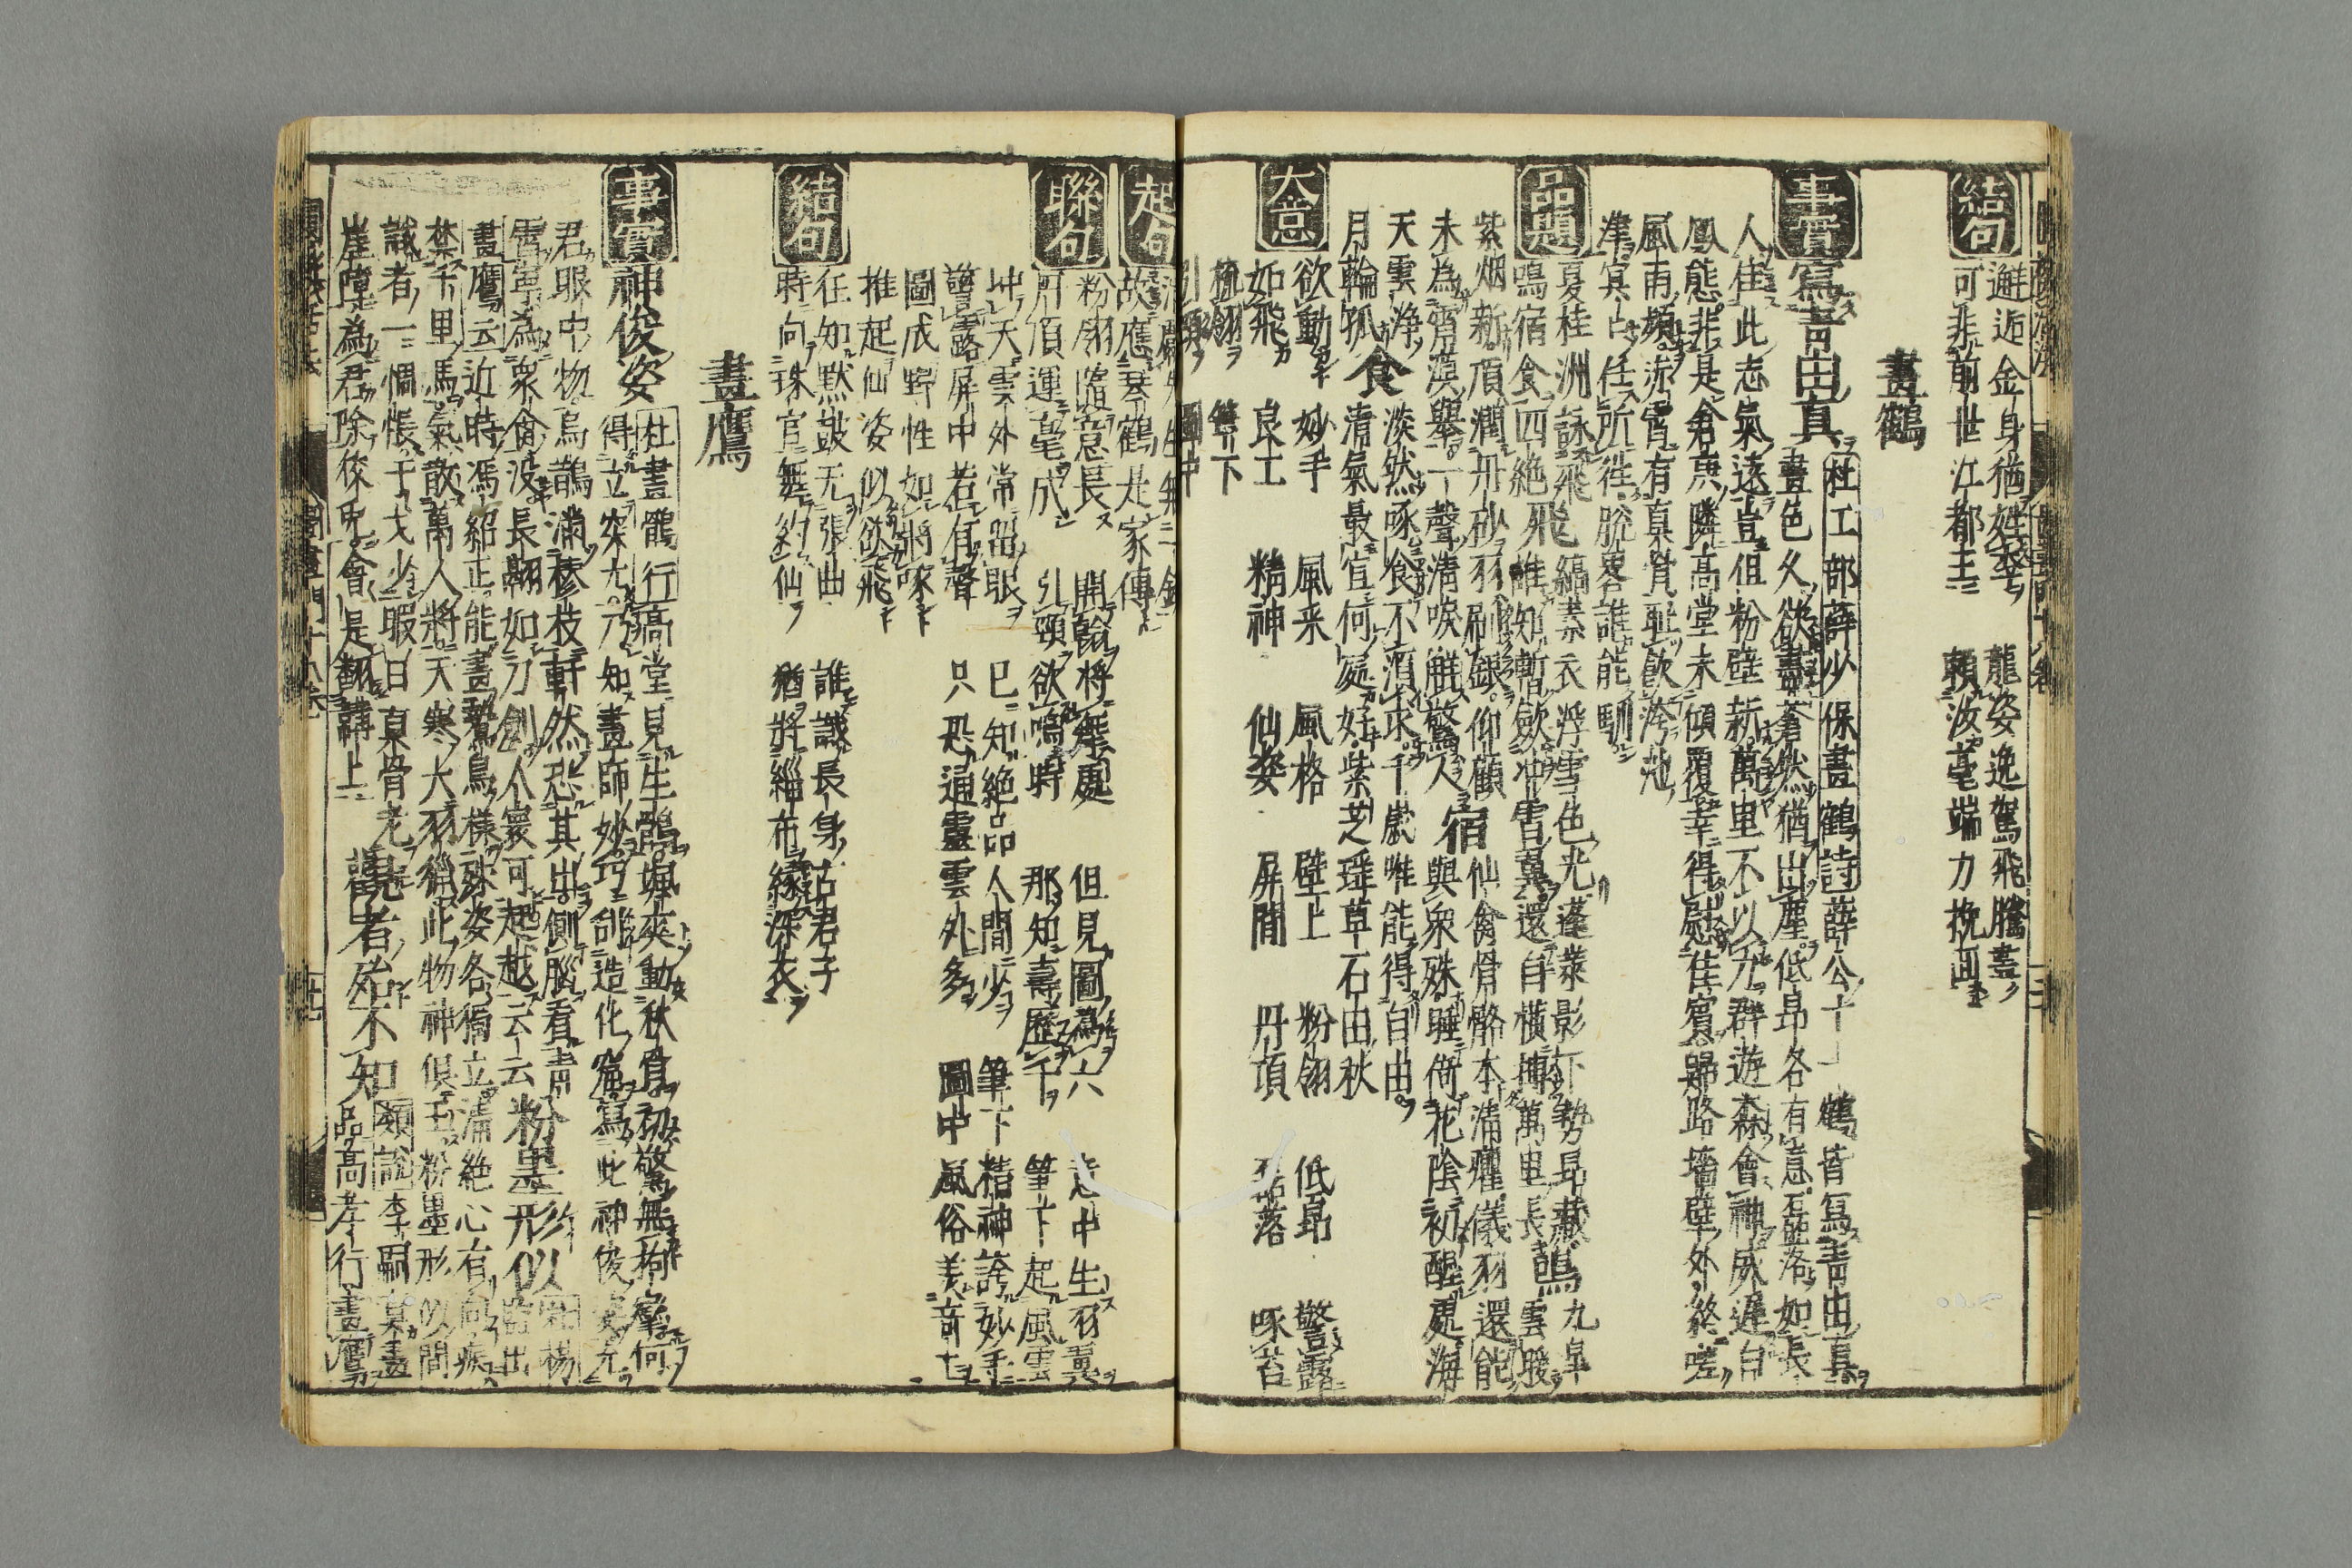 結句
邂逅金身猶姓李 龍姿逸駕飛騰畫
可非前世江都王 賴汝毫端力挽回
畫鶴
事實
寫青田真 杜工部薛少保畫鶴詩薛公十一鶴皆寫青田真
畫色久欲盡蒼然猶出塵低昂各有意磊落如長
人佳此志氣遠豈但粉壁新萬里不以力群遊森會神威遲白
鳳態非是倉庚隣高堂未傾覆幸得慰佳賓曝露牆壁外終嗟
風雨頻赤霄有真骨恥飲洿池
津冥冥任所往脫略誰能馴
品題
夏桂洲詠飛 縞素衣浮雪色光蓬萊影下勢昂藏
鳴宿食四絶飛 誰知暫斂冲霄翼還自橫搏萬里長 鳴 九皐雲暖
紫烟新頂潤丹砂羽刷銀仰顧 仙禽骨骼本清癯儀羽還能
未為霄漢舉一聲清唳觧驚人 宿 與衆殊睡倚花陰初醒處海
天雲淨 淡然啄食不須求千歲唯能得自由
月輪孤 食 清氣最宜何處好紫芝瑤草石田秋
大意
欲動 妙手 風采 風格 壁上 粉翎 低昂 警露
如飛 良工 精神 仙姿 屏間 丹頂 磊落 啄苔
梳翎 筆下
引頸 圖中
起句
故應琴鶴是家傳
聯句
粉翎隨意長 開翰將舞處 但見圖為六 意中生羽翼
丹頂運毫成 引頸欲鳴時 那知壽歷千 筆下起風雲
冲天雲外常留眼 已知絶品人間少 筆下精神誇妙手
警露屏中若有聲 只恐通靈雲外多 圖中風俗羨奇七
圖成野性如將啄
推起仙姿似欲飛
結句
任知默鼓无張曲 誰識長身古君子
時向珠官舞釣仙 猶將緇布緣深衣
畫鷹
事實
神俊姿 杜畫鶻行高堂見生鶻颯爽動秋骨初驚無拘攣何
得立突兀乃知畫師妙巧刮造化窟寫此神俊姿充
君眼中物烏鵲滿樛枝軒然恐其出側腦看青
霄寧為衆禽没長翮如刀劍人寰可超越云云 粉墨形似
畫鷹云近時馮紹正能畫鷙鳥樣殊姿各獨立清絶心有向疾
禁千里馬氣敵萬人將天寒大羽獵此物神俱王粉墨形似間
識者一惆悵干戈少暇日真骨老
崖嶂為君除狡兎會是飜韝上 觀者殆不知 類說李嗣真畫
品高孝行畫鷹